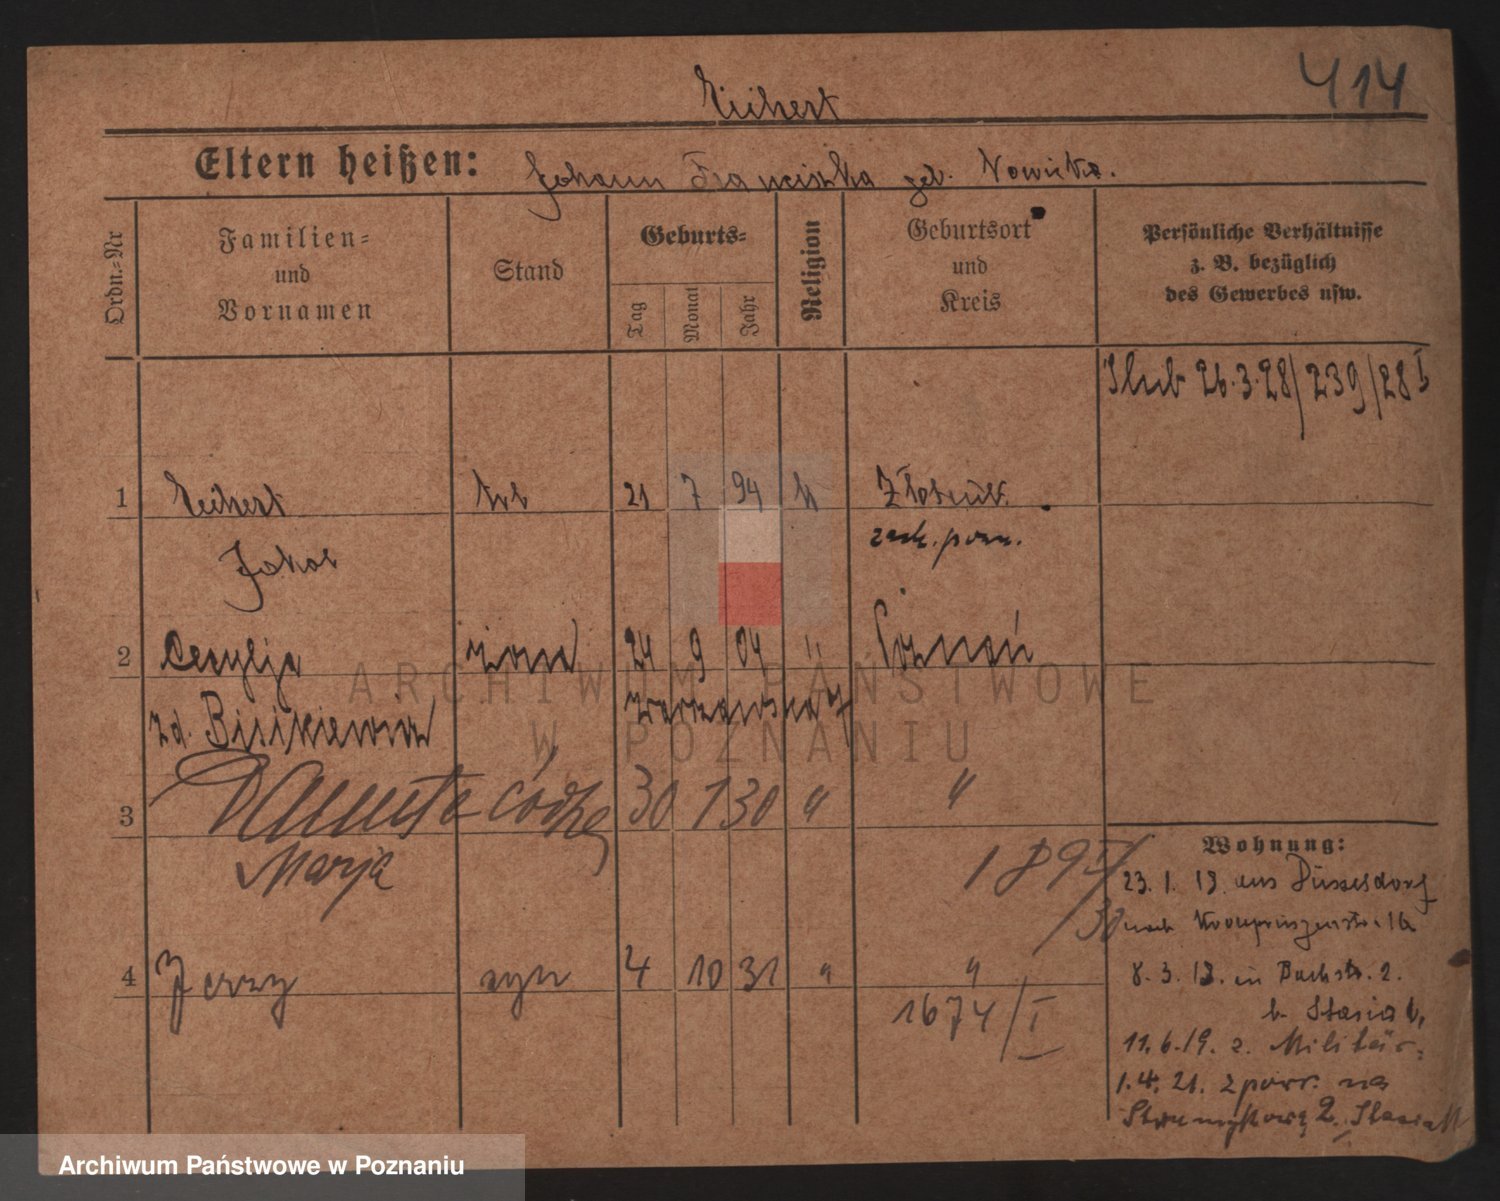 414
Eichert
Eltern heißen: Johann Franciszka geb. Nowicka.
Ordn.-Nr
Familien-
und
Vornamen
Stand
Geburts-
Tag
Monat
Jahr
Religion
Geburtsort
und
Kreis
Persönliche Verhältnisse
z. B. bezüglich
des Gewerbes usw.
Slub 26.3.28/239/28 I
1 Eichert 21 7 94 k
Jakob
2 Cecylja żona 24 9 04 " Poznań
zd.
3 Danuta córka 30 1 30 " "
Marja
1895/
/30
4 Jerzy syn 4 10 31 " "
1674/I
Wohnung:
23. 1. 13. aus Düsseldorf
nach Kronprinzenstr. 16
8. 3. 13. in Bachstr. 2.
b. Stasiak,
11. 6. 19. z. Militär.
1. 4. 21. z powr. na
Strumykową 2. Stasiak
ARCHIWUM PAŃSTWOWE
W POZNANIU
Archiwum Państwowe w Poznaniu